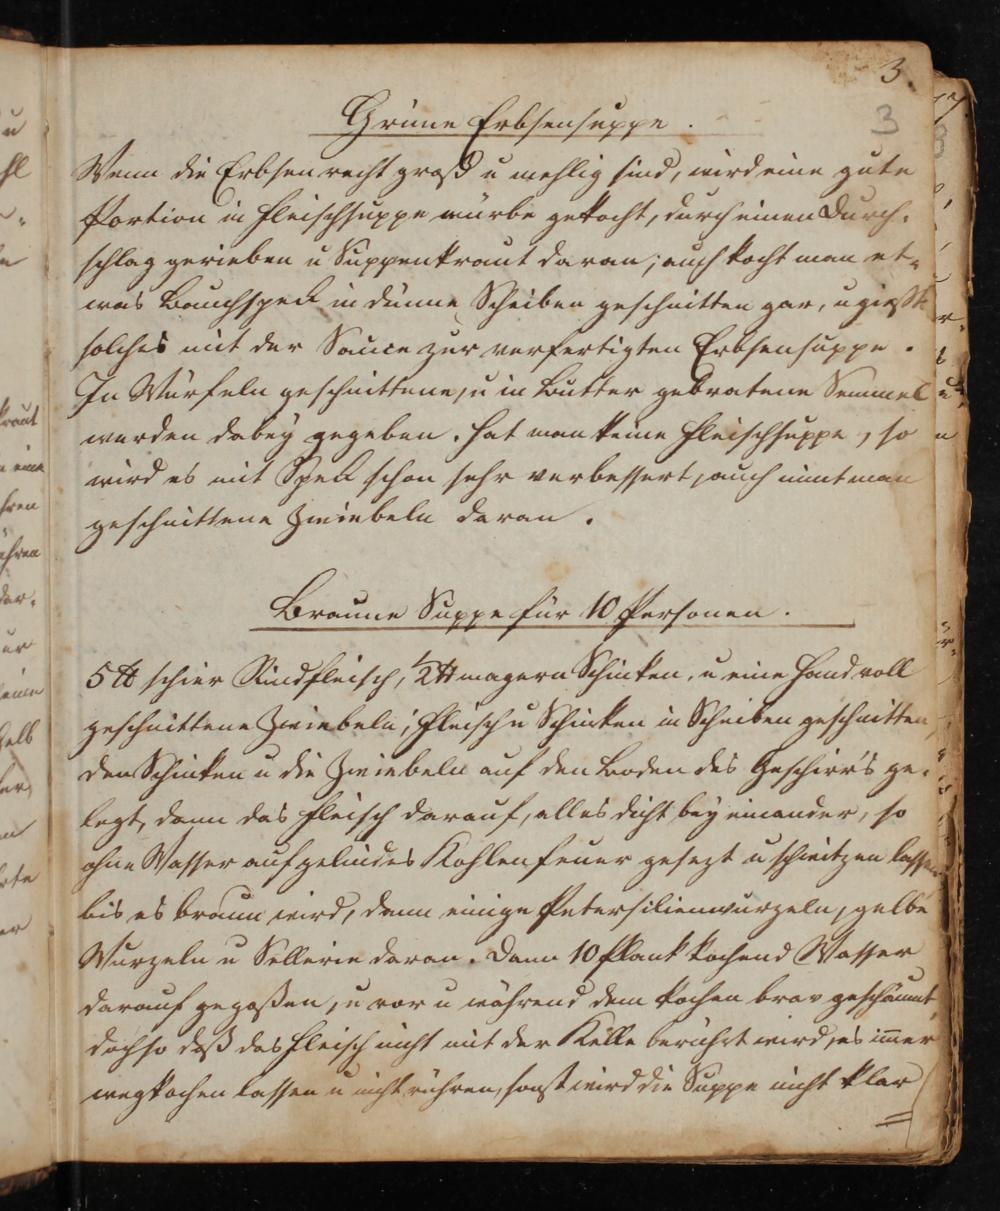 3.
3
Grüne Erbsensuppe.
Wenn die Erbsen recht groß u mehlig sind, wird eine gute
Portion in Fleischsuppe mürbe gekocht, durch einen Durch-
schlag gerieben u Suppenkraut daran; auch kocht man et-
was Bauchspeck in dünne Scheiben geschnitten gar, u gießt
solches mit der Sauce zur verfertigten Erbsensuppe.
In Würfeln geschnittene, u in Butter gebratene Semmel
werden dabey gegeben. Hat man keine Fleischsuppe, so
wird es mit Speck schon sehr verbessert, auch nimt man
geschnittene Zwiebeln daran.
Braune Suppe für 10 Personen.
5 ℔ schier Rindfleisch, 1/2 ℔ magern Schinken, u eine Hand voll
geschnittene Zwiebeln; Fleisch u Schinken in Scheiben geschnitten,
den Schinken u die Zwiebeln auf den Boden des Geschirr's ge-
legt, dann das Fleisch darauf, alles dicht bey einander, so
ohne Wasser auf gelindes Kohlenfeuer gesezt u schwitzen lassen
bis es braun wird, dann einige Petersilienwurzeln, gelbe
Wurzeln u Sellerie daran. Dann 10 Plank kochend Wasser
darauf gegoßen, u vor u während dem kochen brav geschäumt,
doch so daß das Fleisch nicht mit der Kelle berührt wird, es im̄er
wegkochen lassen u nicht rühren, sonst wird die Suppe nicht klar